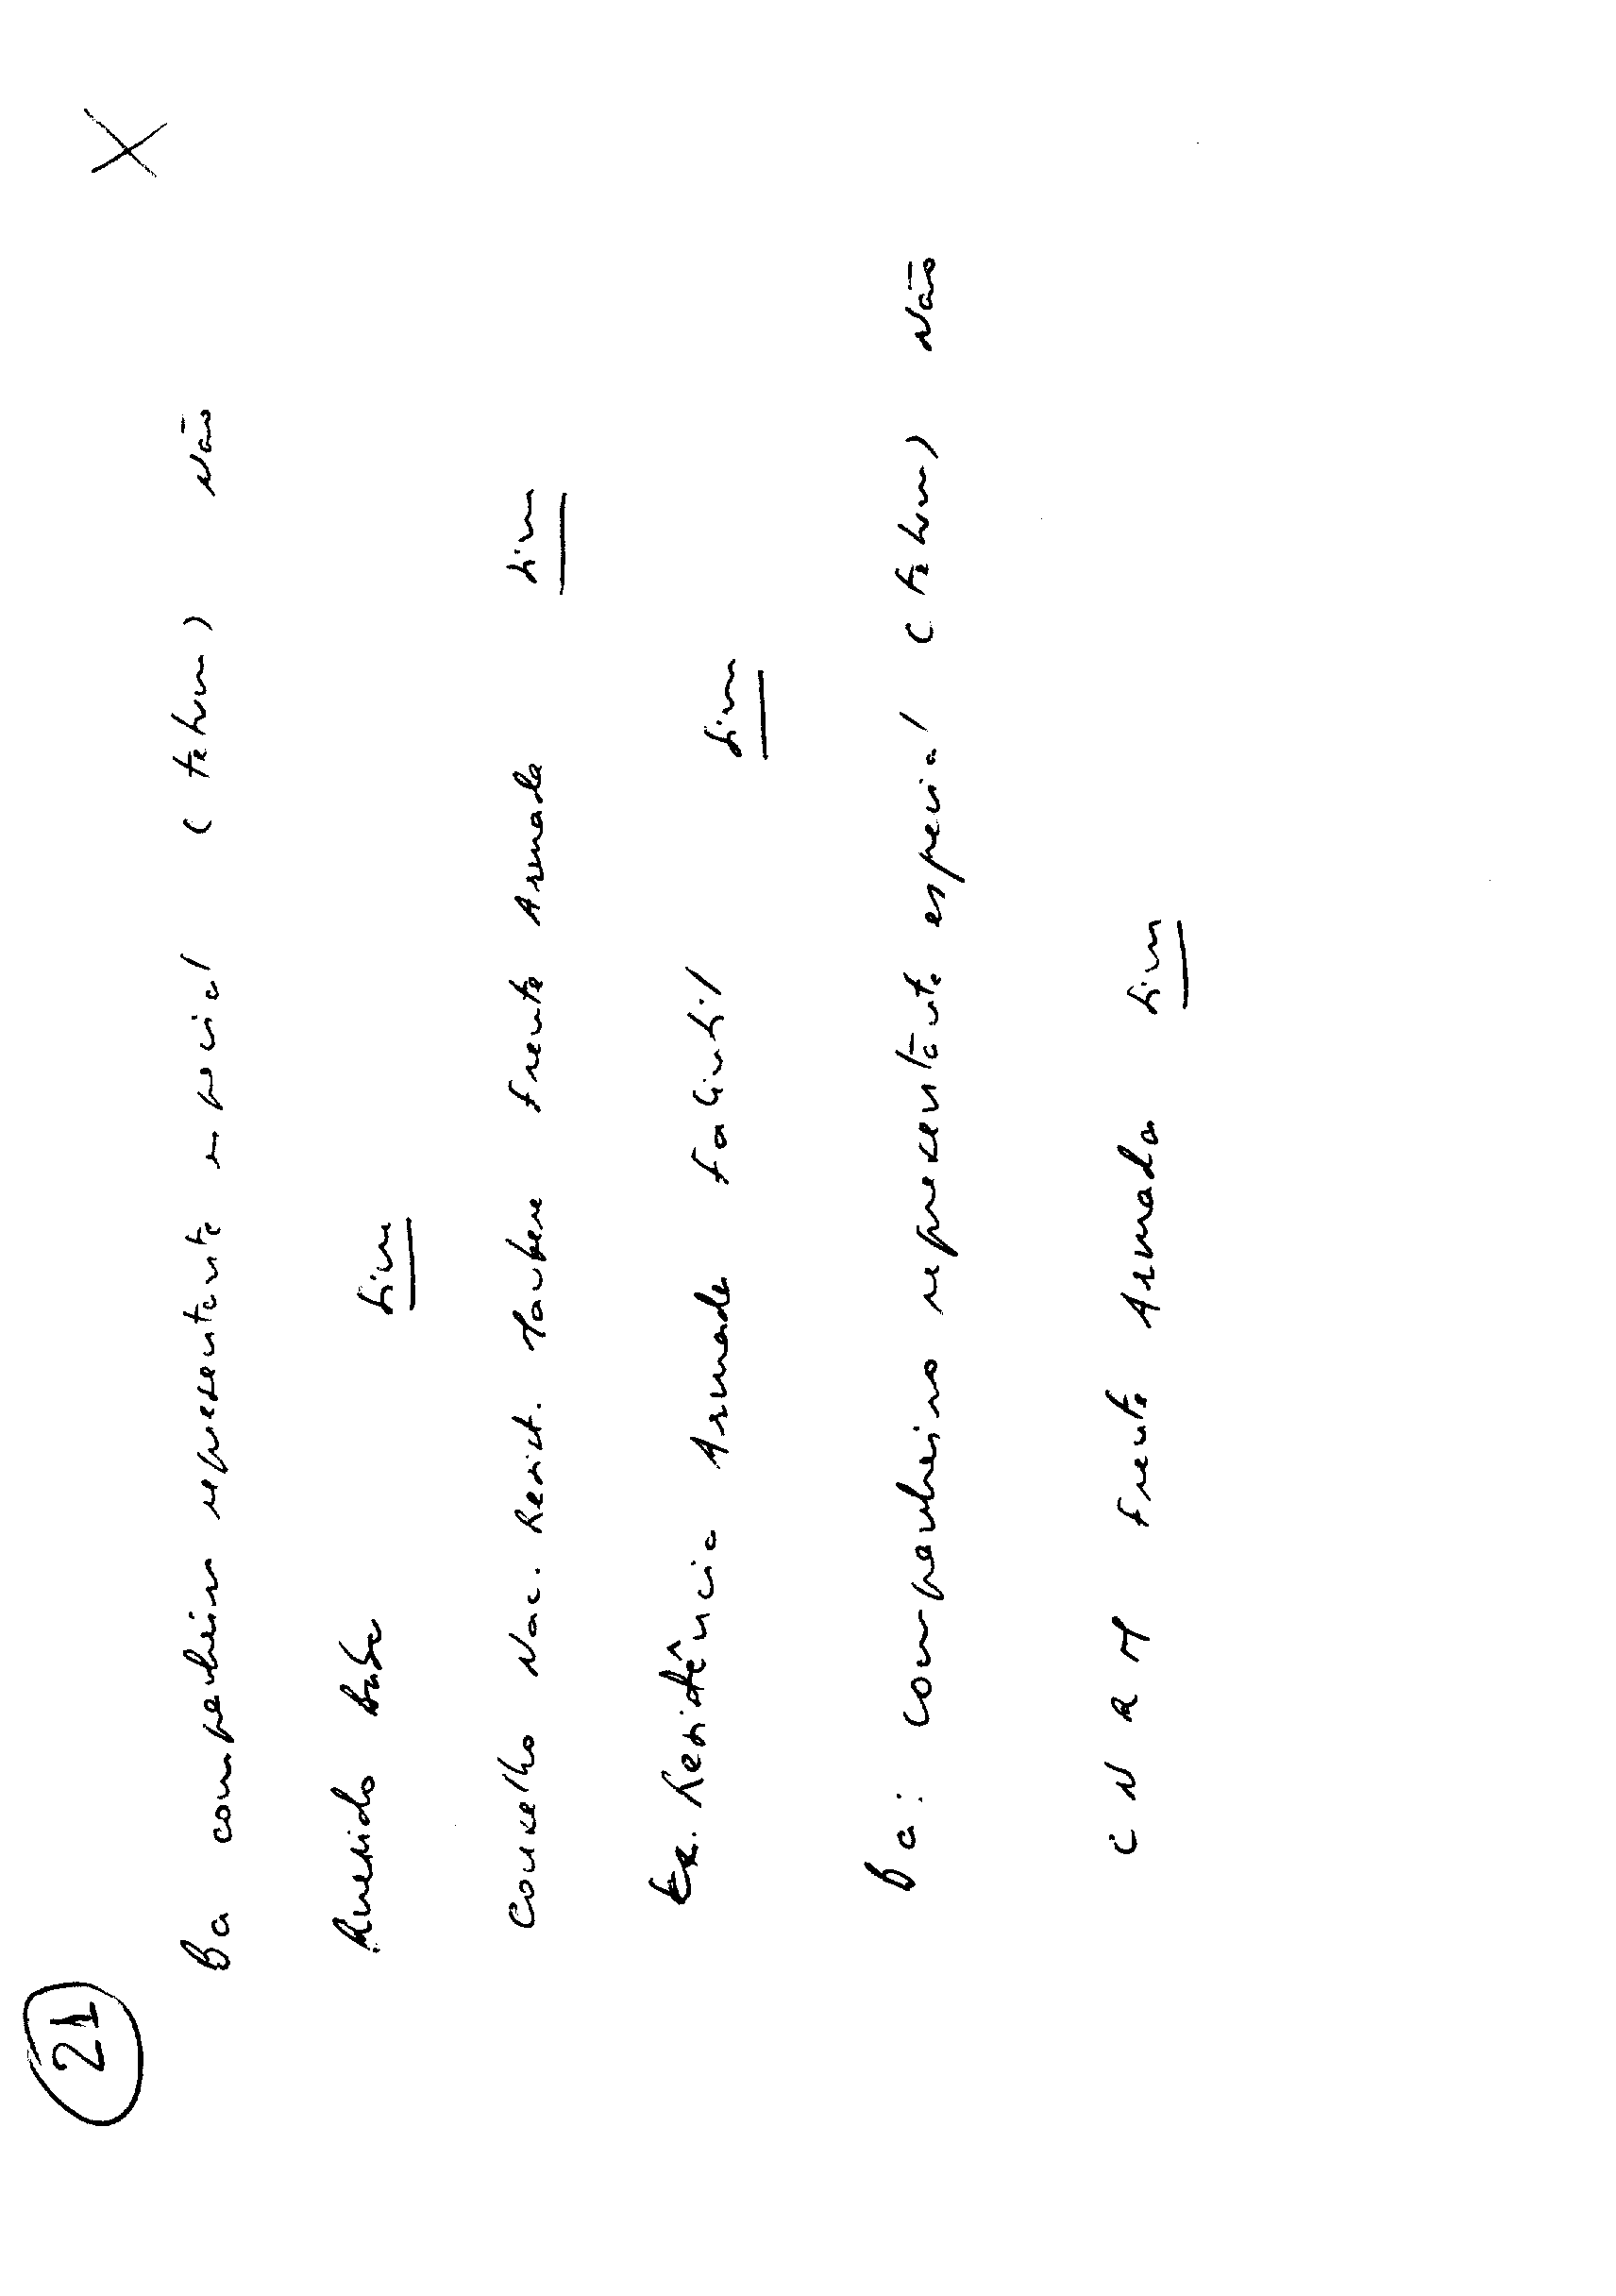 21 X
Ba companheiro representante especial (tetum) Não
Querido Sim
Concelho Nac. Resist. Maubere Frente Armada Sim
Ex. Resistência Armada Falintil Sim
Ba: companheiro representante especial (tetum) Não
C N R M Frente Armada Sim